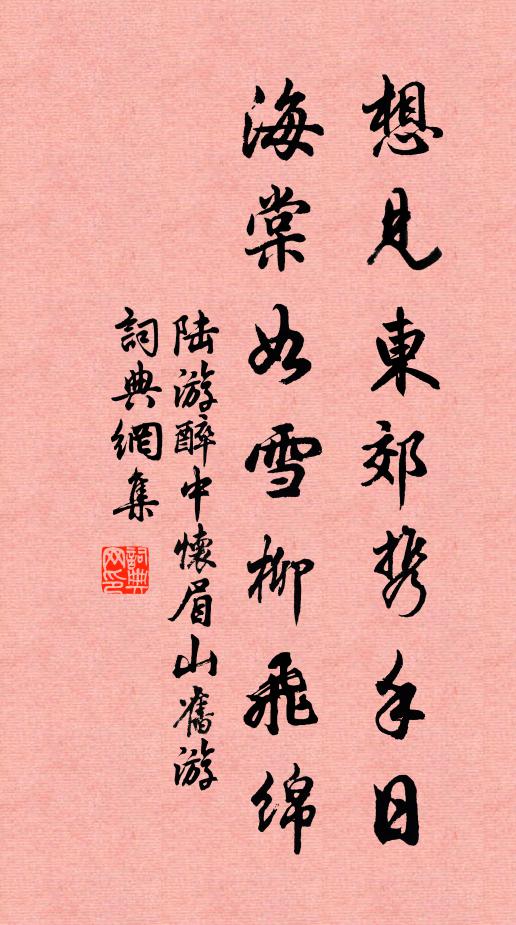 想見東郊携手日
海棠如雪柳飛綿
陆游醉中懷眉山舊游
詞典網集
詞典网印